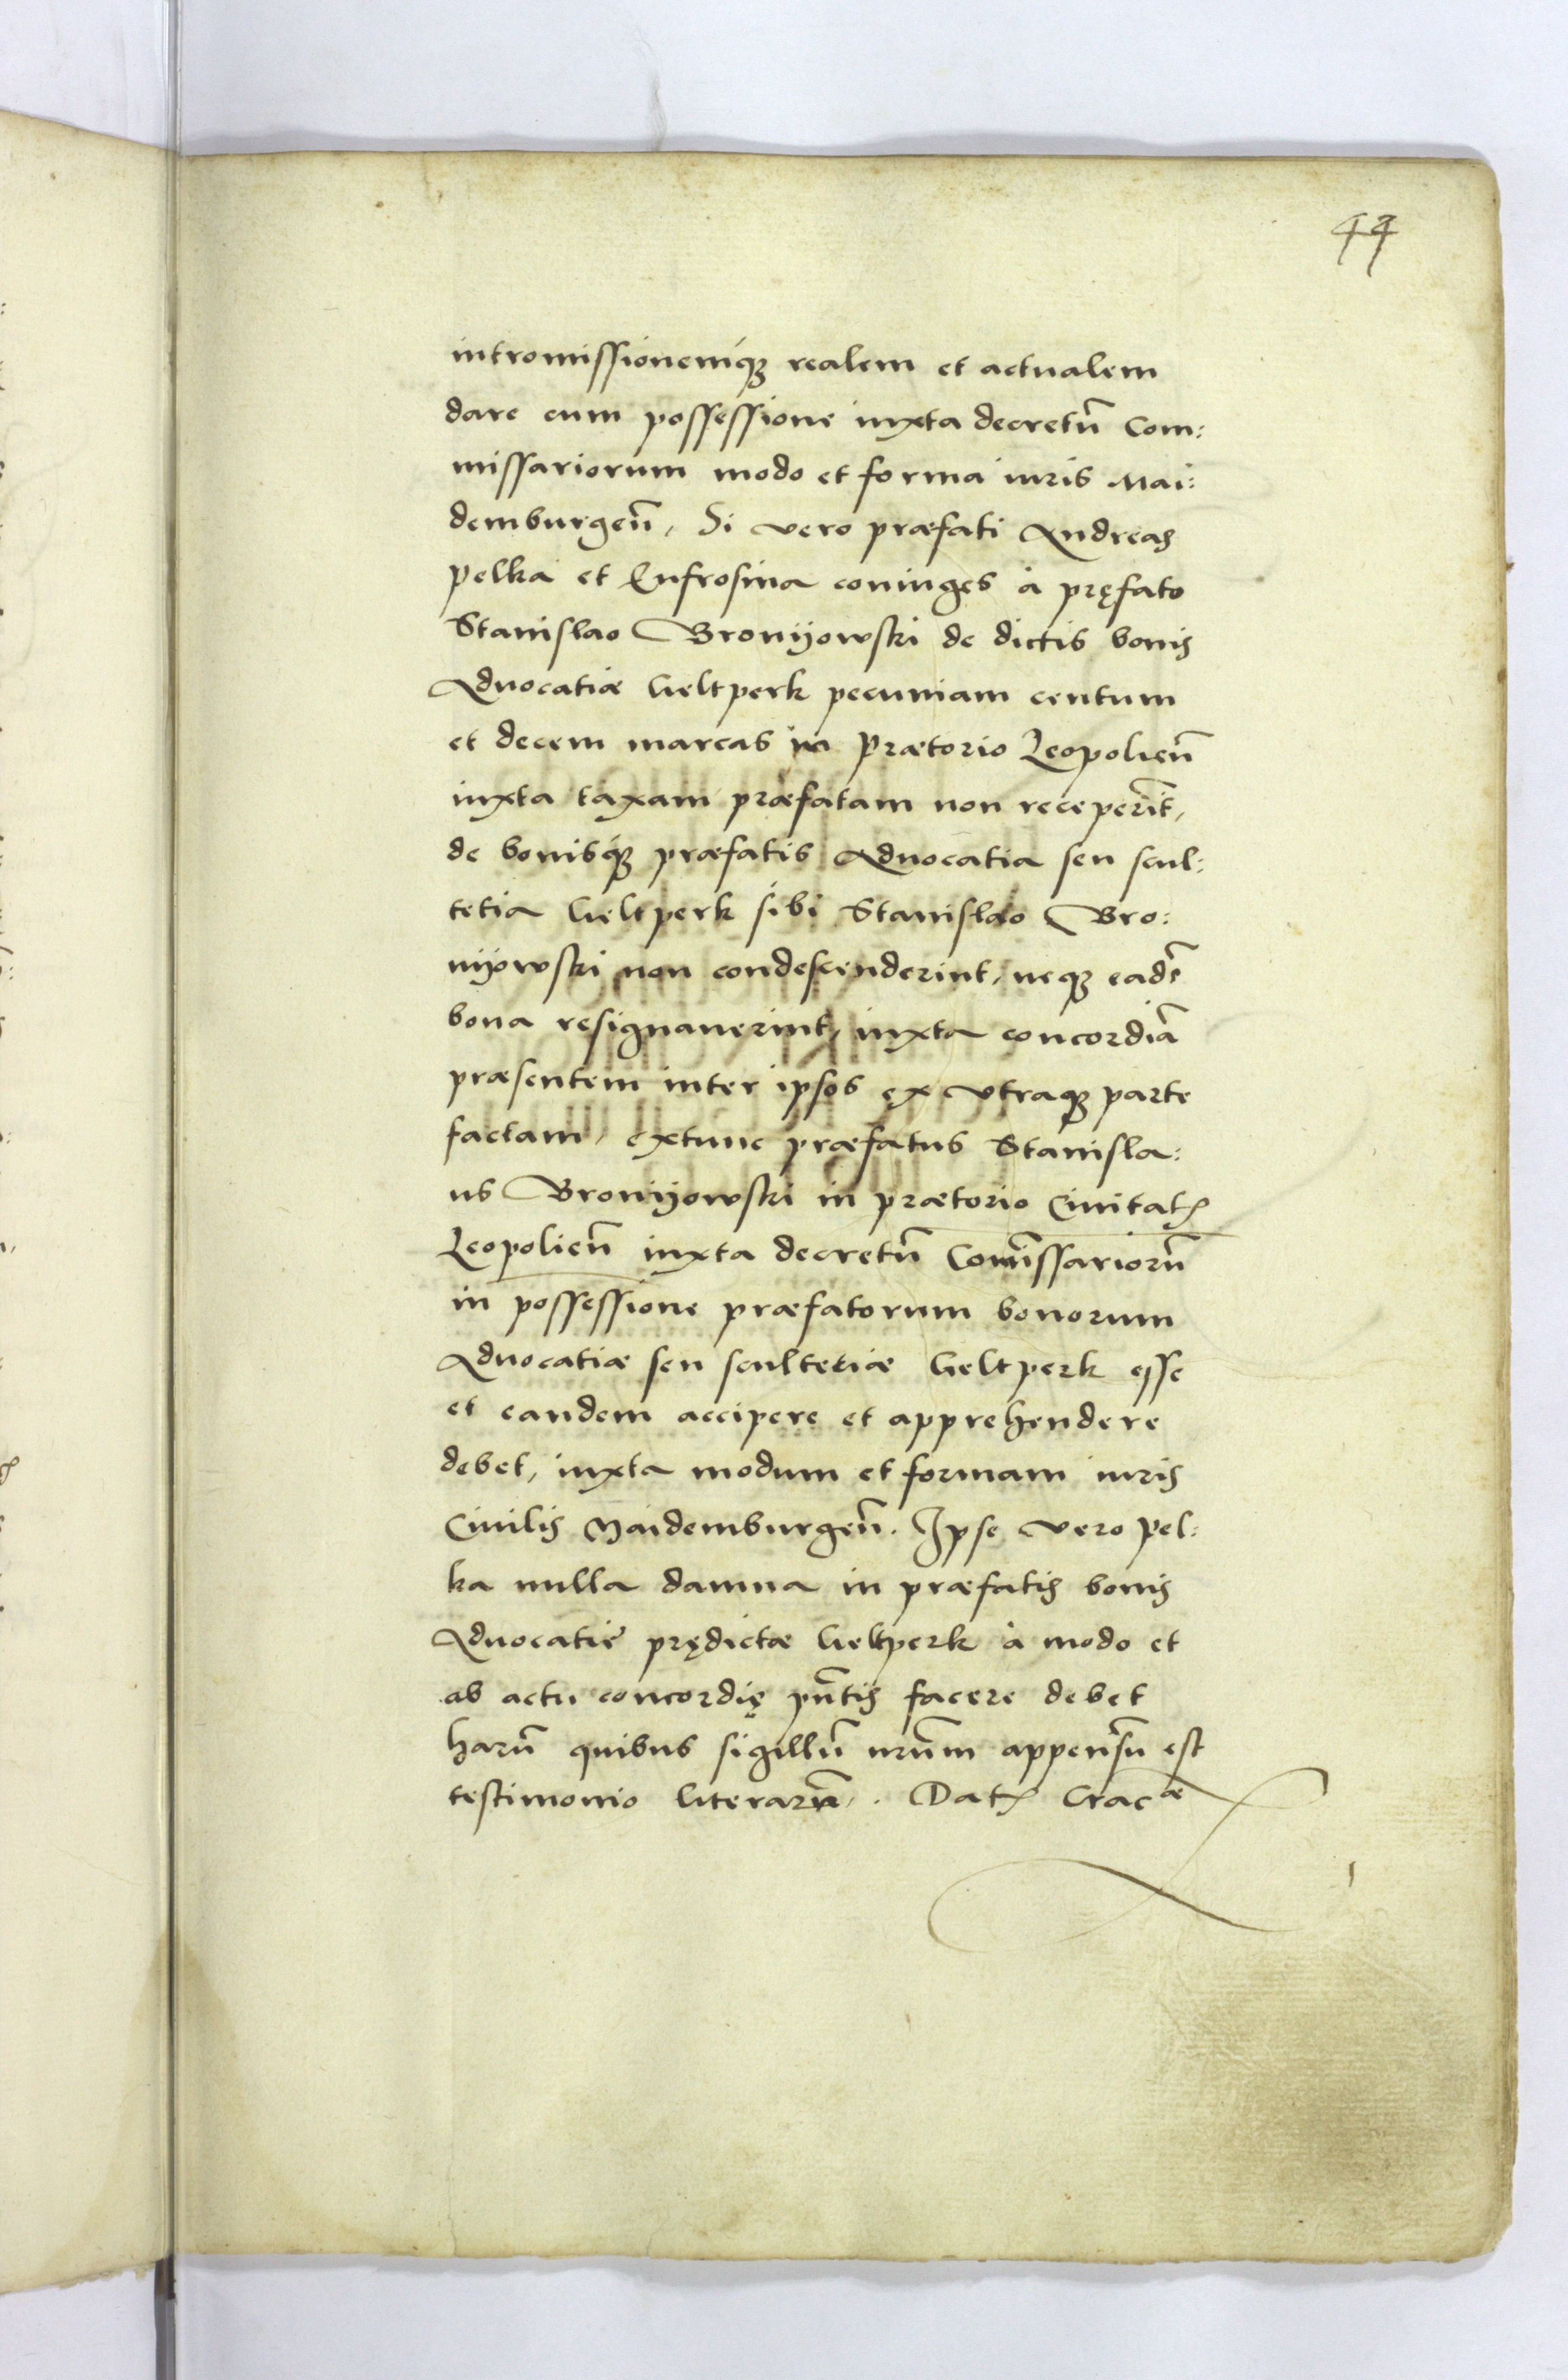 44
intromissionemq́ꝫ realem et actualem
dare cum possessione iuxta decretū Com:
missariorum modo et forma iuris Mai:
demburgeñ, Si vero præfati Andreas
Pelka et Eufrosina coniuges à pręfato
Stanislao Bronijowski de dictis bonis
Aduocatiæ Heltperk pecuniam centum
et decem marcas in Prætorio Leopolieñ
iuxta taxam præfatam non receperīt,
de bonisq́ꝫ præfatis Aduocatia seu scul:
tetia Heltperk sibi Stanislao Bro:
nijowski non condescenderint, neqꝫ eadē
bona resignauerint, iuxta concordiā
præsentem inter ipsos ex vtraqꝫ parte
factam, extunc præfatus Stanisla:
us Bronijowski in prætorio Ciuitatꝭ
Leopolieñ iuxta decretū Com̄issariorū
in possessione præfatorum bonorum
Aduocatiæ seu scultetiæ Heltperk esse
et eandem accipere et apprehendere
debet, iuxta modum et formam iuris
Ciuilis Maidemburgeñ. Ipse vero Pel:
ka nulla damna in præfatis bonis
Aduocatię prędictæ Heltperk à modo et
ab actu concordię pñtis facere debet
harū quibus sigillū nr̄um appensū est
testimonio literarū. Datꝭ Cracæ